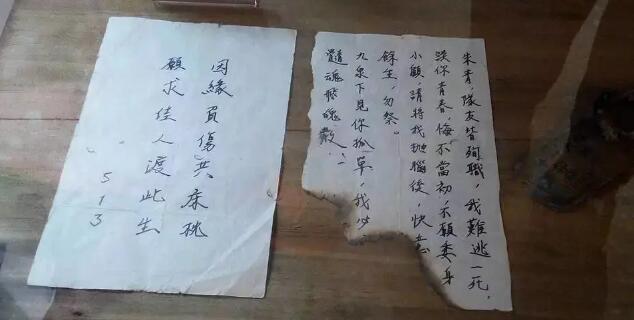 因緣負傷共床桃
願求佳人渡此生
513
朱青,隊友皆殉職,我難逃一死,
誤你青春,悔不當初,不願委身
小顧請將我拋腦後,快意
餘生,勿祭。
九泉下見你孤單,我必
魂飛魄散